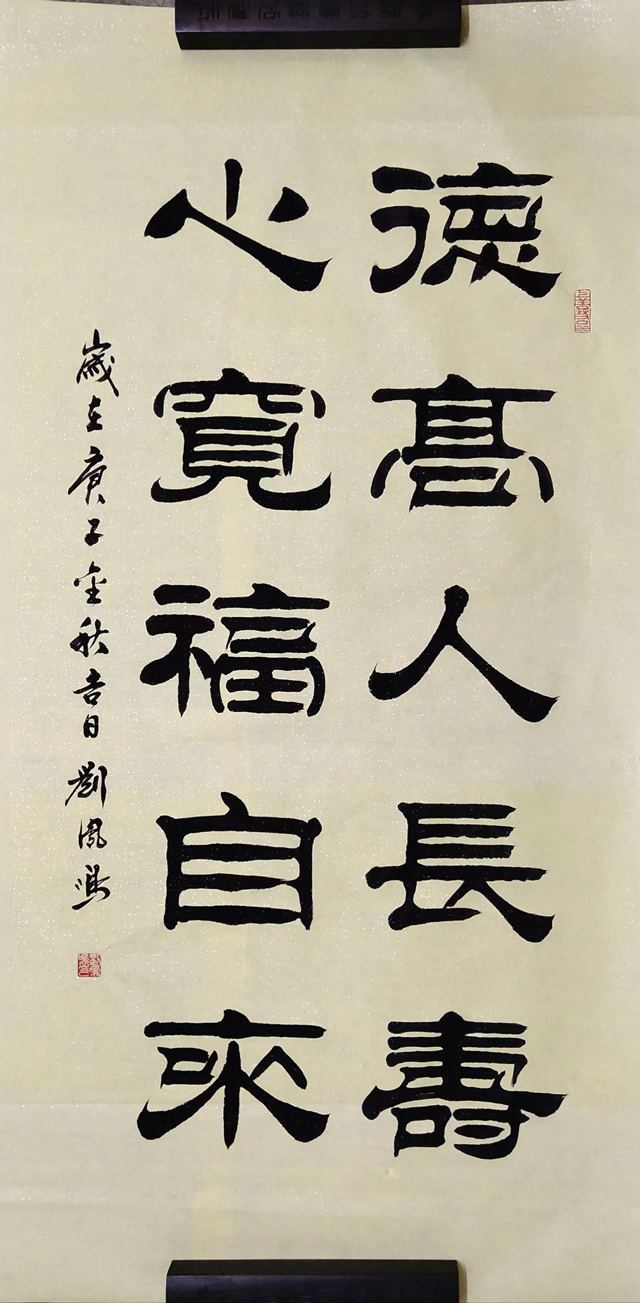 德高人長壽
心寬福自來
歲在庚子金秋吉日劉鳳